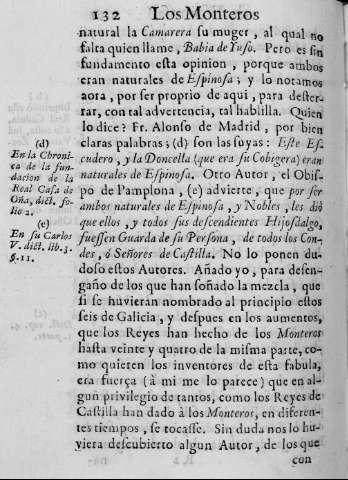 132 Los Monteros
natural la Camarera su muger, al qual no
falta quien llame, Babia de Yuso. Pero es sin
fundamento esta opinion, porque ambos
eran naturales de Espinosa; y lo notamos
aora, por ser proprio de aqui, para dester-
rar, con tal advertencia, tal hablilla. Quien
lo dice? Fr. Alonso de Madrid, por bien
claras palabras; (d) son las suyas: Este Es-
cudero, y la Doncella (que era su Cobigera) eran
naturales de Espinosa. Otro Autor, el Obis-
po de Pamplona, (e) advierte, que por ser
ambos naturales de Espinosa, y Nobles, les dió
que ellos, y todos sus descendientes Hijosdalgo,
fuessen Guarda de su Persona, de todos los Con-
des, ó Señores de Castilla. No lo ponen du-
doso estos Autores. Añado yo, para desen-
gaño de los que han soñado la mezcla, que
si se huvieran nombrado al principio estos
seis de Galicia, y despues en los aumentos,
que los Reyes han hecho de los Monteros
hasta veinte y quatro de la misma parte, co-
mo quieren los inventores de esta fabula,
era fuerça (à mi me lo parece) que en al-
gun privilegio de tantos, como los Reyes de
Castilla han dado à los Monteros, en diferen-
tes tiempos, se tocasse. Sin duda nos lo hu-
viera descubierto algun Autor, de los que
con
(d)
En la Chroni-
ca de la fun-
dacion de la
Real Casa de
Oña, dict. fo-
lio 2.
(e)
En su Carlos
V. dict. lib. 3.
§. 11.